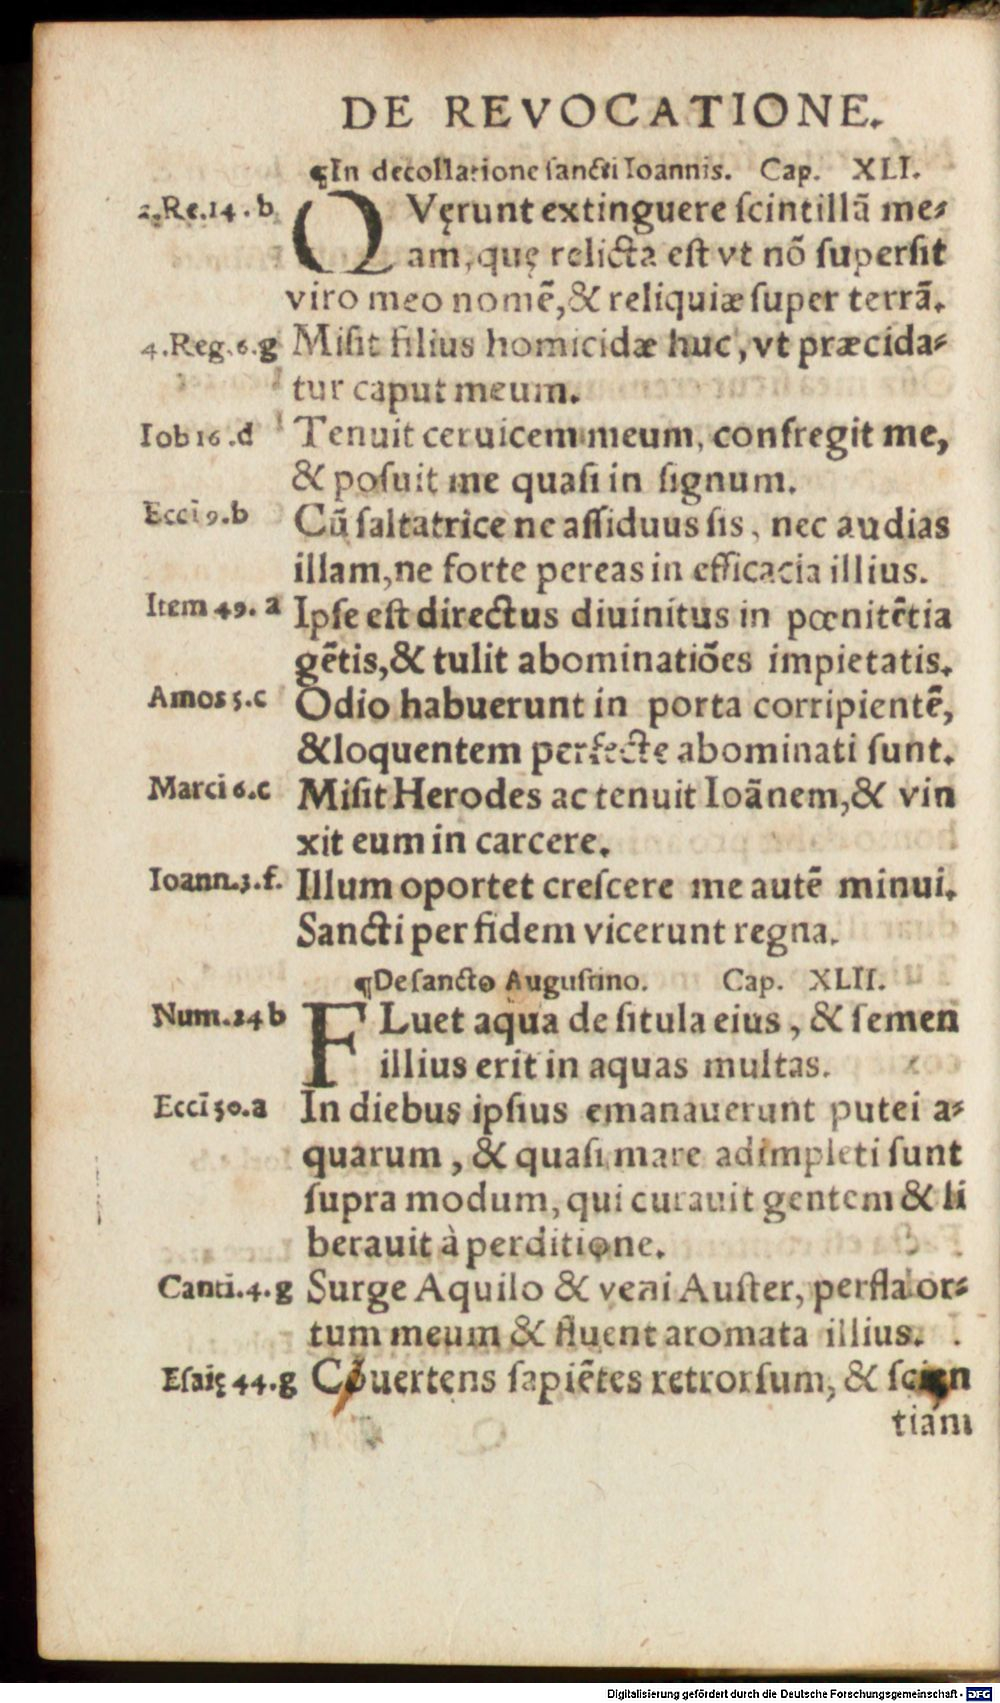 DE REVOCATIONE.
¶In decollatione sancti Ioannis. Cap. XLI.
2.Re.14.b QVęrunt extinguere scintillā me⸗
am, quę relicta est vt nō supersit
viro meo nomē, & reliquiæ super terrā.
4.Reg.6.g Misit filius homicidæ huc, vt præcida⸗
tur caput meum.
Iob 16.d Tenuit ceruicem meum, confregit me,
& posuit me quasi in signum.
Eccī 9.b Cū saltatrice ne assiduus sis, nec audias
illam, ne forte pereas in efficacia illius.
Item 49. a Ipse est directus diuinitus in pœnitētia
gētis, & tulit abominatiōes impietatis.
Amos 5.c Odio habuerunt in porta corripientē,
& loquentem perfecte abominati sunt.
Marci 6.c Misit Herodes ac tenuit Ioānem, & vin
xit eum in carcere.
Ioann.3.f. Illum oportet crescere me autē minui.
Sancti per fidem vicerunt regna.
¶De sancto Augustino. Cap. XLII.
Num.24 b FLuet aqua de situla eius, & semen
illius erit in aquas multas.
Eccī 50.a In diebus ipsius emanauerunt putei a⸗
quarum, & quasi mare adimpleti sunt
supra modum, qui curauit gentem & li
berauit à perditione.
Canti.4.g Surge Aquilo & veni Auster, perfla or⸗
tum meum & fluent aromata illius.
Esaię 44.g Cōuertens sapiētes retrorsum, & scien
tiam
Digitalisierung gefördert durch die Deutsche Forschungsgemeinschaft - DFG